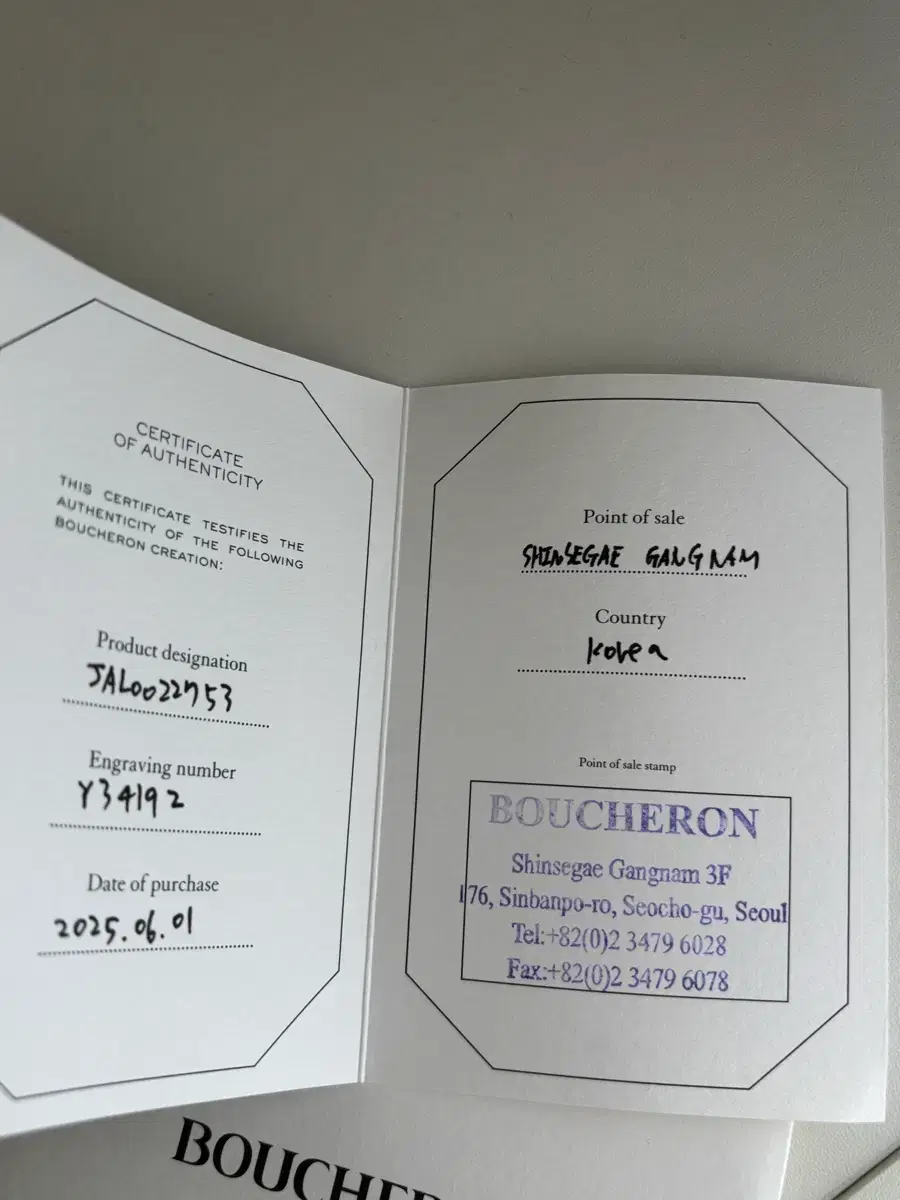 CERTIFICATE
OF AUTHENTICITY
THIS CERTIFICATE TESTIFIES THE
AUTHENTICITY OF THE FOLLOWING
BOUCHERON CREATION:
Product designation
JAL0022753
Engraving number
Y34192
Date of purchase
2025.06.01
Point of sale
SHINSEGAE GANGNAM
Country
Korea
Point of sale stamp
BOUCHERON
Shinsegae Gangnam 3F
176, Sinbanpo-ro, Seocho-gu, Seoul
Tel:+82(0)2 3479 6028
Fax:+82(0)2 3479 6078
BOUCHER